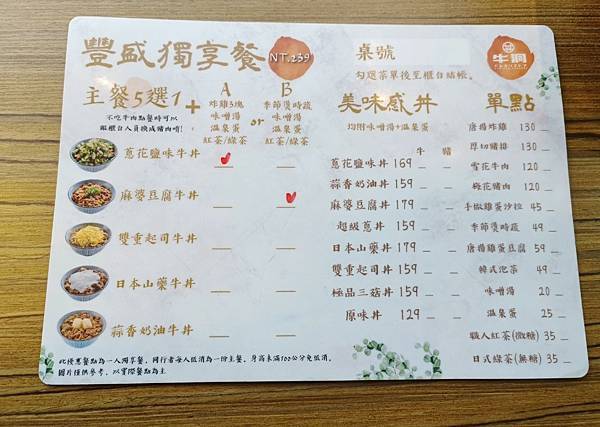 豐盛獨享餐 NT.239
主餐5選1 +
不吃牛肉點餐時可以
跟櫃台人員換成豬肉唷!
A
炸雞3塊
味噌湯
溫泉蛋
紅茶/綠茶
or
B
季節燙時蔬
味噌湯
溫泉蛋
紅茶/綠茶
蔥花鹽味牛丼
麻婆豆腐牛丼
雙重起司牛丼
日本山藥牛丼
蒜香奶油牛丼
此優惠餐點為一人獨享餐，同行者每人低消為一份主餐，身高未滿100公分免低消。
圖片僅供參考，以實際餐點為主
桌號
勾選菜單後至櫃台結帳。
牛洞
美味感丼
均附味噌湯+溫泉蛋
牛 豬
蔥花鹽味丼 169
蒜香奶油丼 159
麻婆豆腐丼 179
超級蔥丼 159
日本山藥丼 179
雙重起司丼 159
極品三菇丼 159
原味丼 129
單點
唐揚炸雞 130
厚切豬排 130
雪花牛肉 120
梅花豬肉 120
手做雞蛋沙拉 45
季節燙時蔬 49
唐揚雞蛋豆腐 59
韓式泡菜 49
味噌湯 20
溫泉蛋 25
職人紅茶(微糖) 35
日式綠茶(無糖) 35